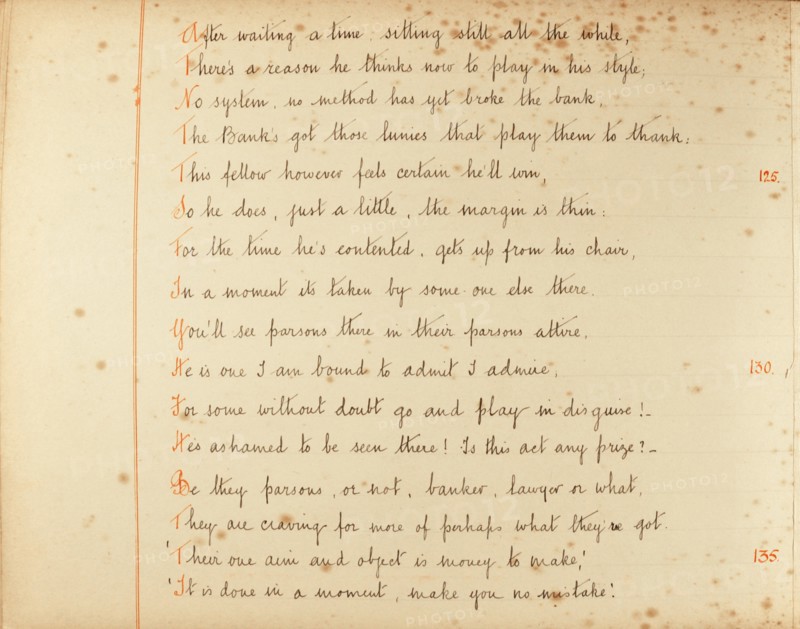 After waiting a time sitting still all the while,
There's a reason he thinks now to play in his style;
No system, no method has yet broke the bank,
The Bank's got those lunies that play them to thank:
This fellow however feels certain he'll win, 125.
So he does, just a little, the margin is thin:
For the time he's contented, gets up from his chair,
In a moment its taken by some-one else there.
You'll see parsons there in their parsons attire,
He is one I am bound to admit I admire, 130.
For some without doubt go and play in disguise!-
He's ashamed to be seen there! Is this act any prize?-
Be they parsons, or not, banker, lawyer or what,
They are craving for more of perhaps what they're got.
'Their one aim and object is money to make,' 135.
'It is done in a moment, make you no mistake'.